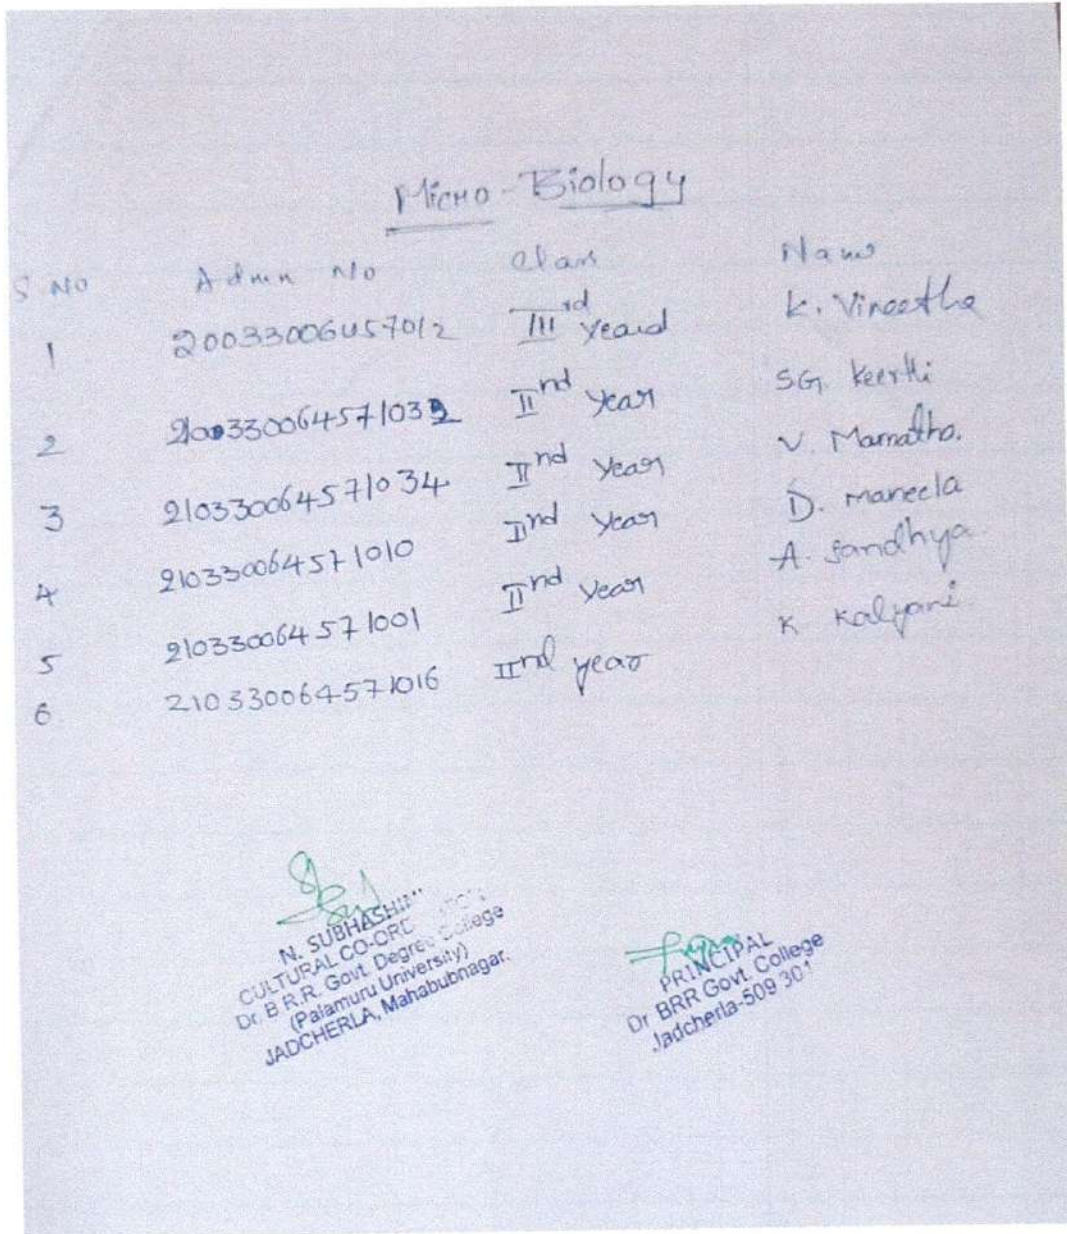 Micro-Biology
S No Admn No Class Name
1 20033006457012 IIIrd yeard K. Vineetha
2 IInd year SG. Keerthi
3 210330064571034 IInd Year V. Mamatha.
4 210330064571010 IInd Year D. maneela
5 210330064571001 IInd Year A. Sandhya.
6 210330064571016 IInd year K Kalyani.
N. SUBHASHINI
CULTURAL CO-ORD
Dr. B R.R. Govt. Degree College
(Palamuru University)
JADCHERLA, Mahabubnagar.
PRINCIPAL
Dr BRR Govt. College
Jadcherla-509 301